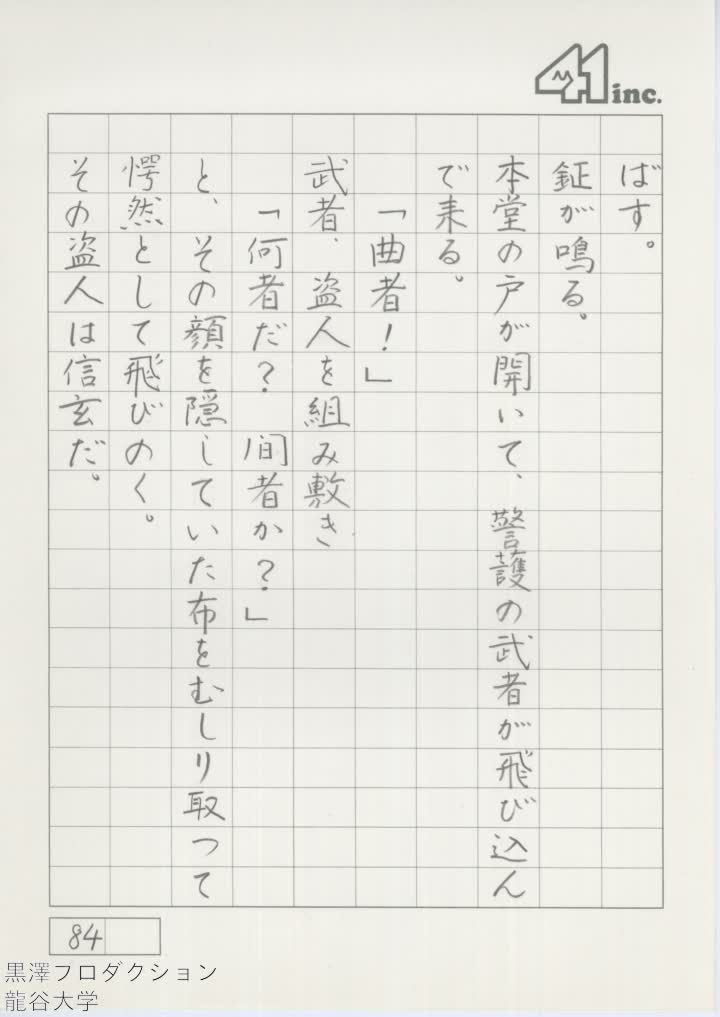 41 inc.
ばす。
鉦が鳴る。
本堂の戸が開いて、警護の武者が飛び込ん
で来る。
「曲者！」
武者、盗人を組み敷き
「何者だ？　間者か？」
と、その顔を隠していた布をむしり取つて
愕然として飛びのく。
その盗人は信玄だ。
84
黒澤フロダクション
龍谷大学